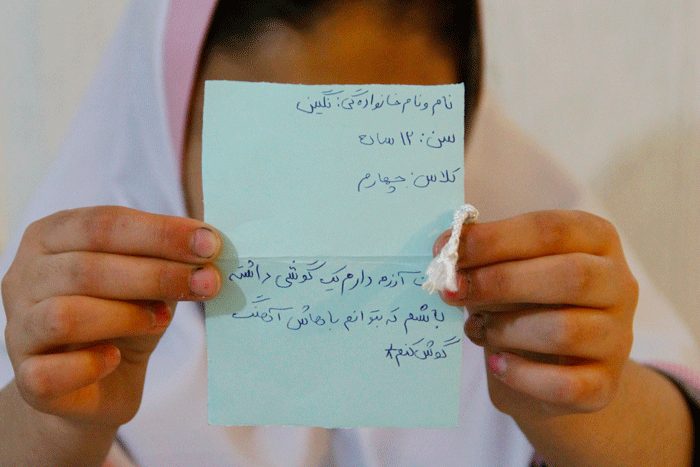 نام و نام خانوادگی: نگین
سن: ۱۲ ساله
کلاس: چهارم
آرزو دارم یک گوشی داشته
باشم که بتوانم باهاش آهنگ
گوش کنم*